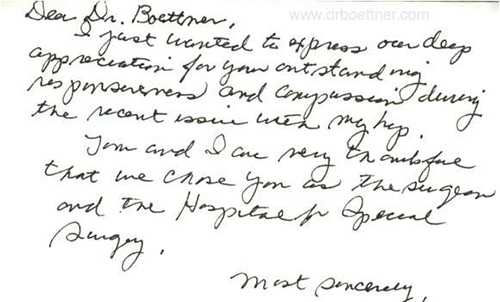 www.drboettner.com
Dear Dr. Boettner,
I just wanted to express our deep
appreciation for your outstanding
responsiveness and compassion during
the recent issue with my hip.
Tom and I are very thankful
that we chose you as the surgeon
and the Hospital for Special
Surgery.
Most sincerely,